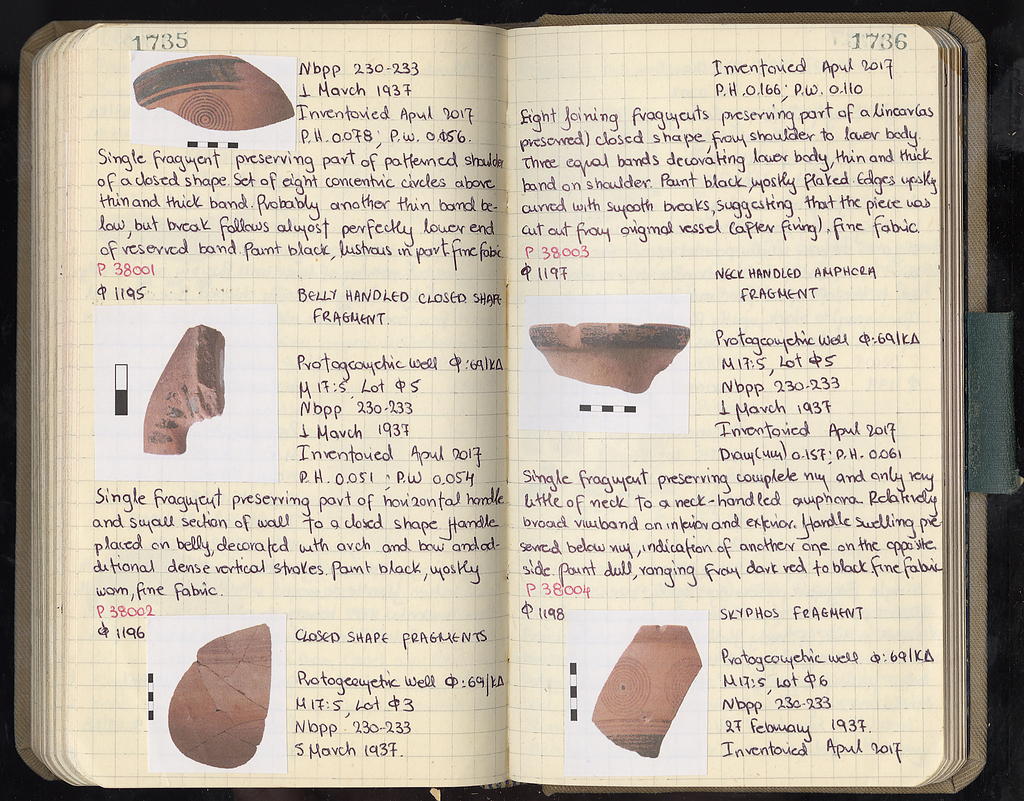 1735
Nbpp 230-233
1 March 1937
Inventoried April 2017
P.H. 0.078; P.W. 0.156.
Single fragment preserving part of patterned shoulder
of a closed shape. Set of eight concentric circles above
thin and thick band. Probably another thin band be-
low, but break follows almost perfectly lower end
of reserved band. Paint black, lustrous in part. Fine fabric.
P 38001
Φ 1195
BELLY HANDLED CLOSED SHAPE
FRAGMENT.
Protogeometric well Φ:69/ΚΔ
M 17:5, Lot Φ5
Nbpp 230-233
1 March 1937
Inventoried April 2017
P.H. 0.051; P.W 0.054
Single fragment preserving part of horizontal handle
and small section of wall to a closed shape. Handle
placed on belly, decorated with arch and bow and ad-
ditional dense vertical strokes. Paint black, mostly
worn, fine fabric.
P 38002
Φ 1196
CLOSED SHAPE FRAGMENTS
Protogeometric well Φ:69/ΚΔ
M 17:5, Lot Φ3
Nbpp 230-233
5 March 1937.
1736
Inventoried April 2017
P.H. 0.166; P.W. 0.110
Eight joining fragments preserving part of a linear (as
preserved) closed shape, from shoulder to lower body.
Three equal bands decorating lower body, thin and thick
band on shoulder. Paint black, mostly flaked. Edges mostly
curved with smooth breaks, suggesting that the piece was
cut out from original vessel (after firing), fine fabric.
P 38003
Φ 1197
NECK HANDLED AMPHORA
FRAGMENT
Protogeometric well Φ:69/ΚΔ
M 17:5, Lot Φ5
Nbpp 230-233
1 March 1937
Inventoried April 2017
Diam (rim) 0.157; P.H. 0.061
Single fragment preserving complete rim and only very
little of neck to a neck-handled amphora. Relatively
broad rimband on interior and exterior. Handle swelling pre-
served below rim, indication of another one on the opposite
side. Paint dull, ranging from dark red to black. Fine fabric
P 38004
Φ 1198
SKYPHOS FRAGMENT
Protogeometric well Φ:69/ΚΔ
M 17:5, Lot Φ6
Nbpp 230-233
27 February 1937.
Inventoried April 2017